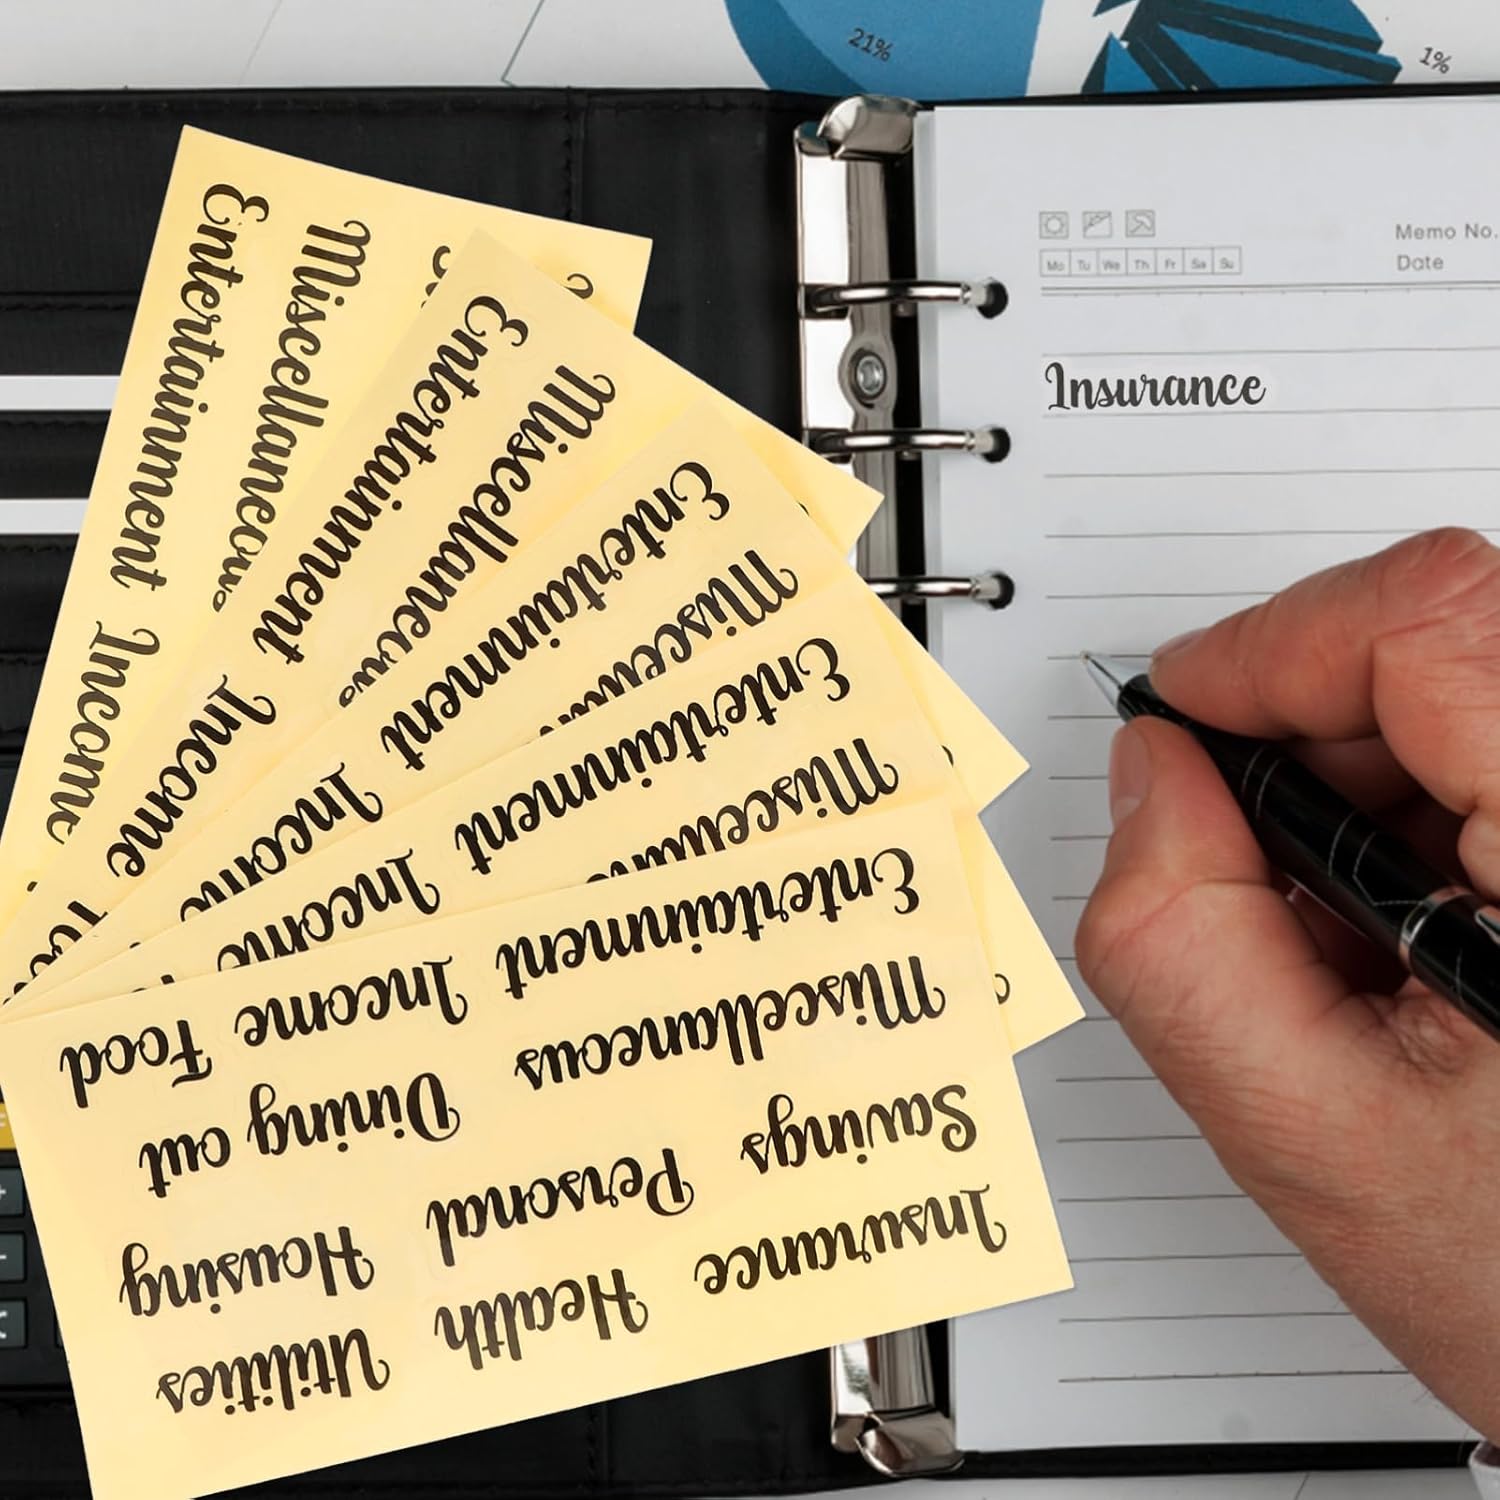 21%
1%
Memo No.
Date
Mo Tu We Th Fr Sa Su
Insurance
Entertainment Income
Miscellaneous
Entertainment Income
Miscellaneous
Entertainment Income
Entertainment Income
Insurance Health Utilities
Savings Personal Housing
Miscellaneous Dining out
Entertainment Income Food